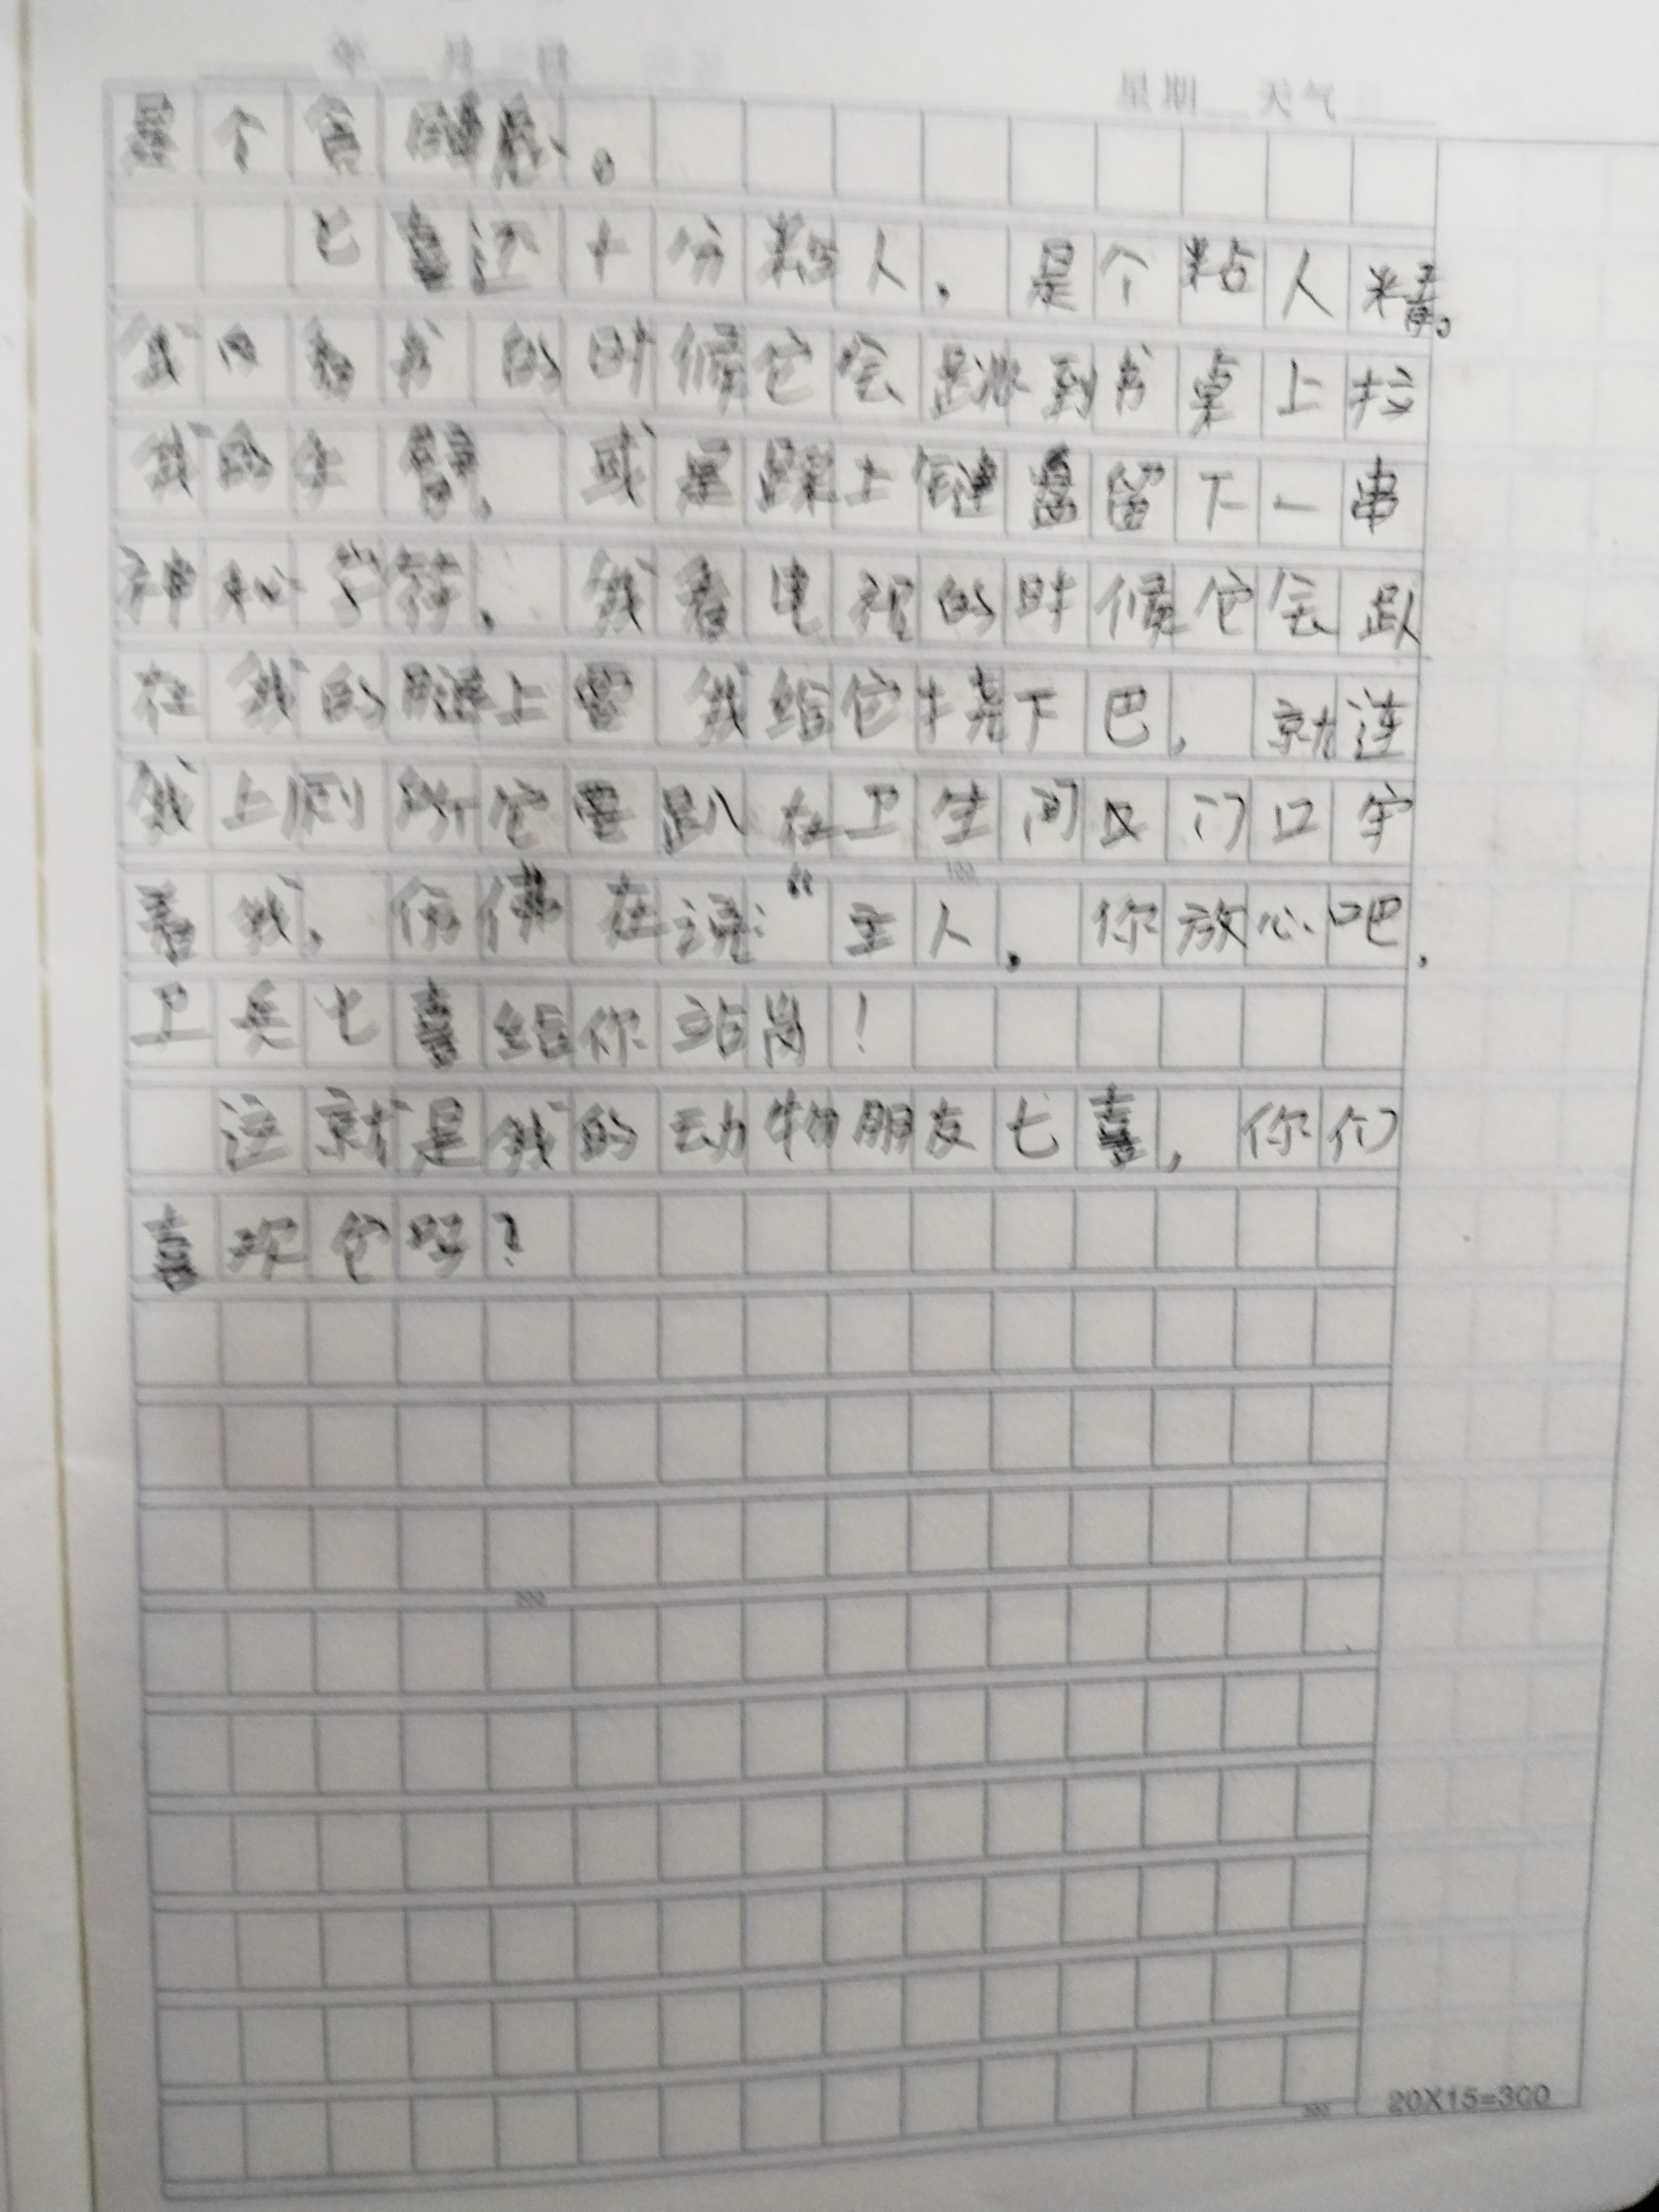 星期__天气__
是个贪睡鬼。
七喜还十分粘人，是个粘人精。
我看书的时候它会跳到书桌上拉
我的手臂，或是踩上键盘留下一串
神秘字符，我看电视的时候它会趴
在我的腿上要我给它挠下巴，就连
我上厕所它要趴在卫生间门口守
着我，仿佛在说：“主人，你放心吧，
卫兵七喜给你站岗！
这就是我的动物朋友七喜，你们
喜欢它吗？
100
200
300
20X15=300